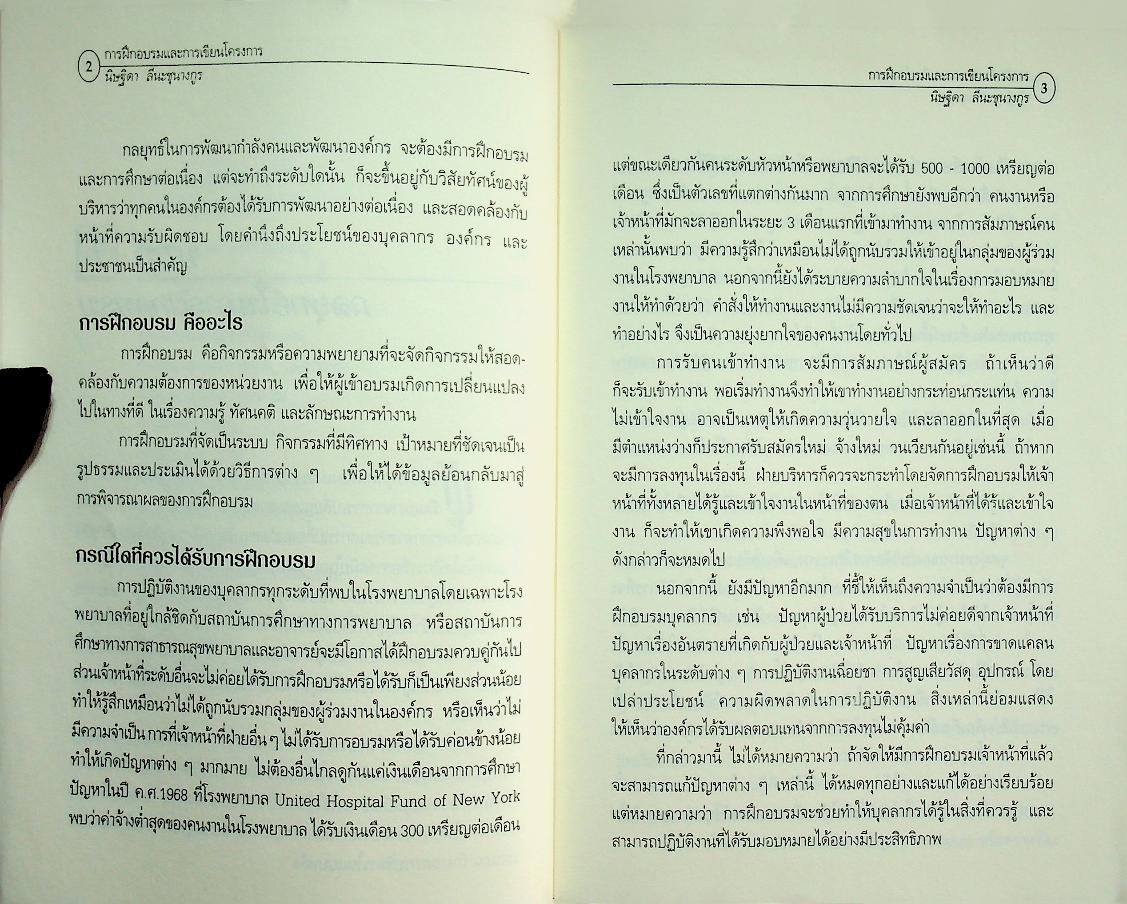 2
การฝึกอบรมและการเขียนโครงการ
นิษฐิดา ลีนะชุนางกูร
กลยุทธ์ในการพัฒนากำลังคนและพัฒนาองค์กร จะต้องมีการฝึกอบรม
และการศึกษาต่อเนื่อง แต่จะทำถึงระดับใดนั้น ก็จะขึ้นอยู่กับวิสัยทัศน์ของผู้
บริหารว่าทุกคนในองค์กรต้องได้รับการพัฒนาอย่างต่อเนื่อง และสอดคล้องกับ
หน้าที่ความรับผิดชอบ โดยคำนึงถึงประโยชน์ของบุคลากร องค์กร และ
ประชาชนเป็นสำคัญ
การฝึกอบรม คืออะไร
การฝึกอบรม คือกิจกรรมหรือความพยายามที่จะจัดกิจกรรมให้สอด-
คล้องกับความต้องการของหน่วยงาน เพื่อให้ผู้เข้าอบรมเกิดการเปลี่ยนแปลง
ไปในทางที่ดี ในเรื่องความรู้ ทัศนคติ และลักษณะการทำงาน
การฝึกอบรมที่จัดเป็นระบบ กิจกรรมที่มีทิศทาง เป้าหมายที่ชัดเจนเป็น
รูปธรรมและประเมินได้ด้วยวิธีการต่าง ๆ เพื่อให้ได้ข้อมูลย้อนกลับมาสู่
การพิจารณาผลของการฝึกอบรม
กรณีใดที่ควรได้รับการฝึกอบรม
การปฏิบัติงานของบุคลากรทุกระดับที่พบในโรงพยาบาลโดยเฉพาะโรง
พยาบาลที่อยู่ใกล้ชิดกับสถาบันการศึกษาทางการพยาบาล หรือสถาบันการ
ศึกษาทางการสาธารณสุขพยาบาลและอาจารย์จะมีโอกาสได้ฝึกอบรมควบคู่กันไป
ส่วนเจ้าหน้าที่ระดับอื่นจะไม่ค่อยได้รับการฝึกอบรมหรือได้รับก็เป็นเพียงส่วนน้อย
ทำให้รู้สึกเหมือนว่าไม่ได้ถูกนับรวมกลุ่มของผู้ร่วมงานในองค์กร หรือเห็นว่าไม่
มีความจำเป็น การที่เจ้าหน้าที่ฝ่ายอื่น ๆ ไม่ได้รับการอบรมหรือได้รับค่อนข้างน้อย
ทำให้เกิดปัญหาต่าง ๆ มากมาย ไม่ต้องอื่นไกลดูกันแค่เงินเดือนจากการศึกษา
ปัญหาในปี ค.ศ.1968 ที่โรงพยาบาล United Hospital Fund of New York
พบว่าค่าจ้างต่ำสุดของคนงานในโรงพยาบาล ได้รับเงินเดือน 300 เหรียญต่อเดือน
การฝึกอบรมและการเขียนโครงการ
นิษฐิดา ลีนะชุนางกูร
3
แต่ขณะเดียวกันคนระดับหัวหน้าหรือพยาบาลจะได้รับ 500 - 1000 เหรียญต่อ
เดือน ซึ่งเป็นตัวเลขที่แตกต่างกันมาก จากการศึกษายังพบอีกว่า คนงานหรือ
เจ้าหน้าที่มักจะลาออกในระยะ 3 เดือนแรกที่เข้ามาทำงาน จากการสัมภาษณ์คน
เหล่านั้นพบว่า มีความรู้สึกว่าเหมือนไม่ได้ถูกนับรวมให้เข้าอยู่ในกลุ่มของผู้ร่วม
งานในโรงพยาบาล นอกจากนี้ยังได้ระบายความลำบากใจในเรื่องการมอบหมาย
งานให้ทำด้วยว่า คำสั่งให้ทำงานและงานไม่มีความชัดเจนว่าจะให้ทำอะไร และ
ทำอย่างไร จึงเป็นความยุ่งยากใจของคนงานโดยทั่วไป
การรับคนเข้าทำงาน จะมีการสัมภาษณ์ผู้สมัคร ถ้าเห็นว่าดี
ก็จะรับเข้าทำงาน พอเริ่มทำงานจึงทำให้เขาทำงานอย่างกระท่อนกระแท่น ความ
ไม่เข้าใจงาน อาจเป็นเหตุให้เกิดความวุ่นวายใจ และลาออกในที่สุด เมื่อ
มีตำแหน่งว่างก็ประกาศรับสมัครใหม่ จ้างใหม่ วนเวียนกันอยู่เช่นนี้ ถ้าหาก
จะมีการลงทุนในเรื่องนี้ ฝ่ายบริหารก็ควรจะกระทำโดยจัดการฝึกอบรมให้เจ้า
หน้าที่ทั้งหลายได้รู้และเข้าใจงานในหน้าที่ของตน เมื่อเจ้าหน้าที่ได้รู้และเข้าใจ
งาน ก็จะทำให้เขาเกิดความพึงพอใจ มีความสุขในการทำงาน ปัญหาต่าง ๆ
ดังกล่าวก็จะหมดไป
นอกจากนี้ ยังมีปัญหาอีกมาก ที่ชี้ให้เห็นถึงความจำเป็นว่าต้องมีการ
ฝึกอบรมบุคลากร เช่น ปัญหาผู้ป่วยได้รับบริการไม่ค่อยดีจากเจ้าหน้าที่
ปัญหาเรื่องอันตรายที่เกิดกับผู้ป่วยและเจ้าหน้าที่ ปัญหาเรื่องการขาดแคลน
บุคลากรในระดับต่าง ๆ การปฏิบัติงานเฉื่อยชา การสูญเสียวัสดุ อุปกรณ์ โดย
เปล่าประโยชน์ ความผิดพลาดในการปฏิบัติงาน สิ่งเหล่านี้ย่อมแสดง
ให้เห็นว่าองค์กรได้รับผลตอบแทนจากการลงทุนไม่คุ้มค่า
ที่กล่าวมานี้ ไม่ได้หมายความว่า ถ้าจัดให้มีการฝึกอบรมเจ้าหน้าที่แล้ว
จะสามารถแก้ปัญหาต่าง ๆ เหล่านี้ ได้หมดทุกอย่างและแก้ได้อย่างเรียบร้อย
แต่หมายความว่า การฝึกอบรมจะช่วยทำให้บุคลากรได้รู้ในสิ่งที่ควรรู้ และ
สามารถปฏิบัติงานที่ได้รับมอบหมายได้อย่างมีประสิทธิภาพ